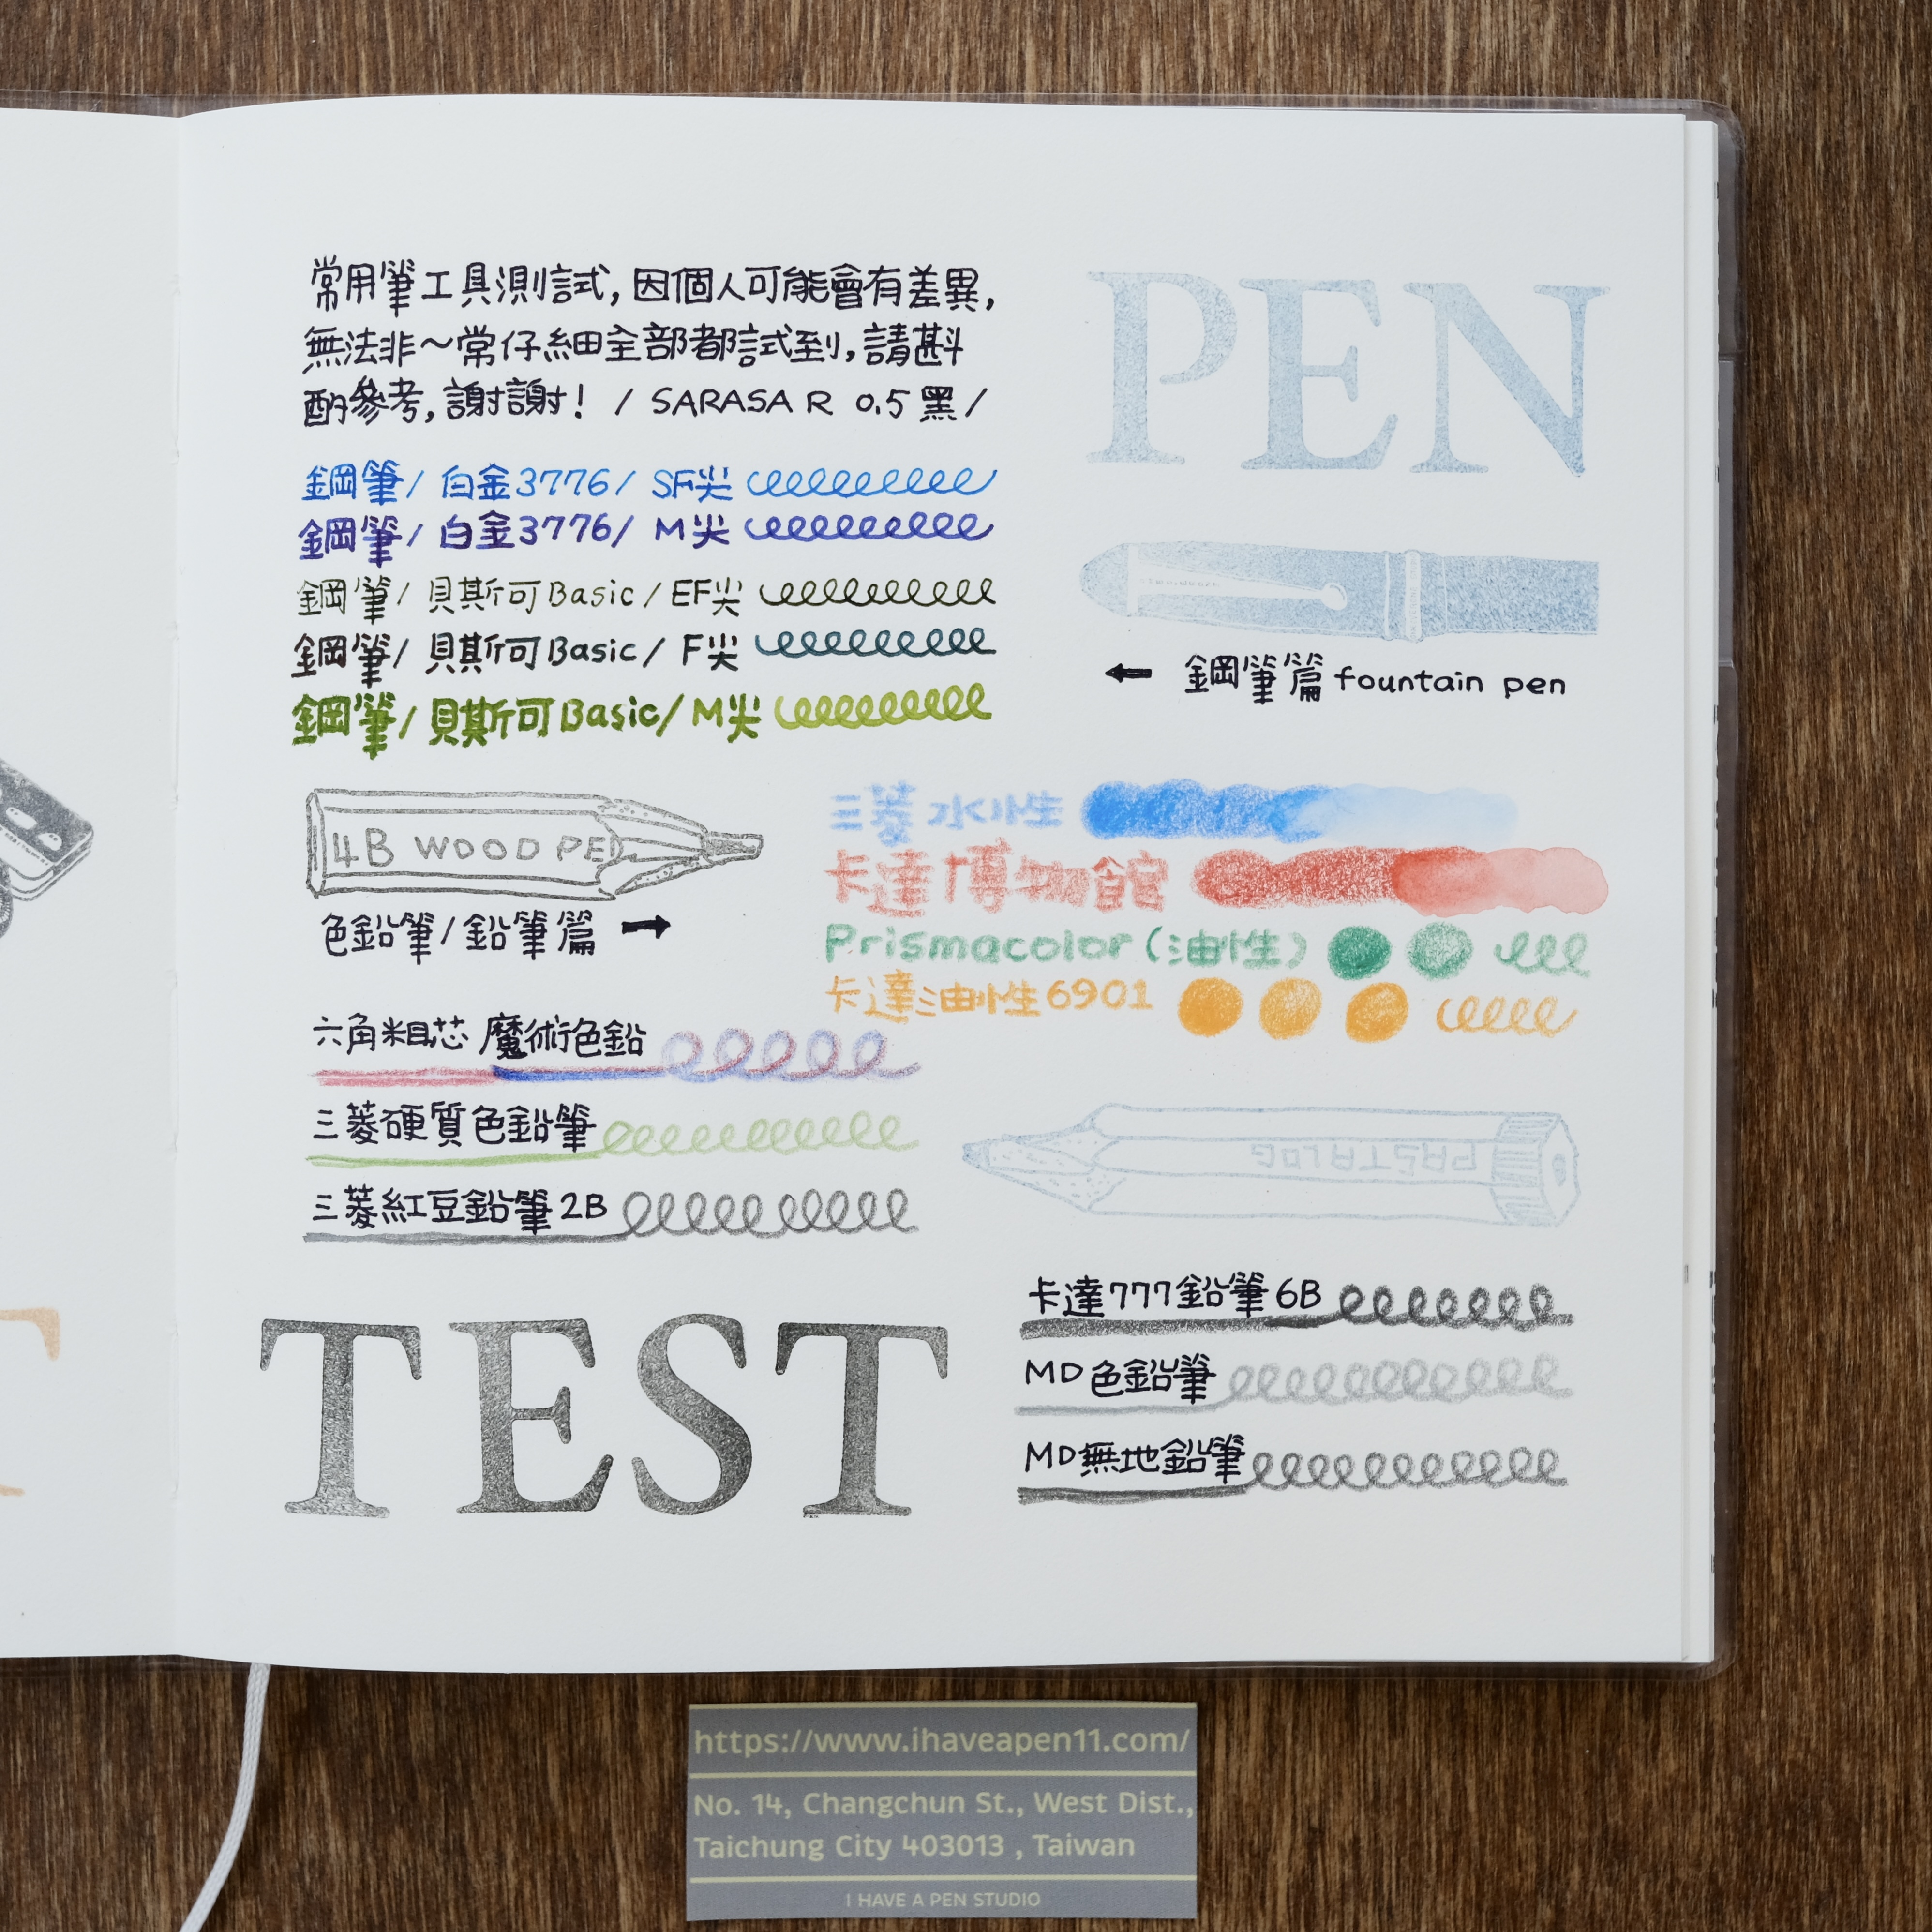 常用筆工具測試,因個人可能會有差異,
無法非~常仔細全部都試到,請斟
酌參考,謝謝! / SARASA R 0.5 黑 /
PEN
鋼筆/ 白金3776/ SF尖
鋼筆/ 白金3776/ M尖
鋼筆/ 貝斯可Basic/ EF尖
鋼筆/ 貝斯可Basic/ F尖
鋼筆/ 貝斯可Basic/ M尖
← 鋼筆篇 fountain pen
4B WOOD PEN
色鉛筆/鉛筆篇 →
三菱水性
卡達博物館
Prismacolor(油性)
卡達油性6901
六角粗芯 魔術色鉛
三菱硬質色鉛筆
三菱紅豆鉛筆2B
PASTALOG
TEST
卡達777鉛筆6B
MD色鉛筆
MD無地鉛筆
https://www.ihaveapen11.com/
No. 14, Changchun St., West Dist.,
Taichung City 403013 , Taiwan
I HAVE A PEN STUDIO